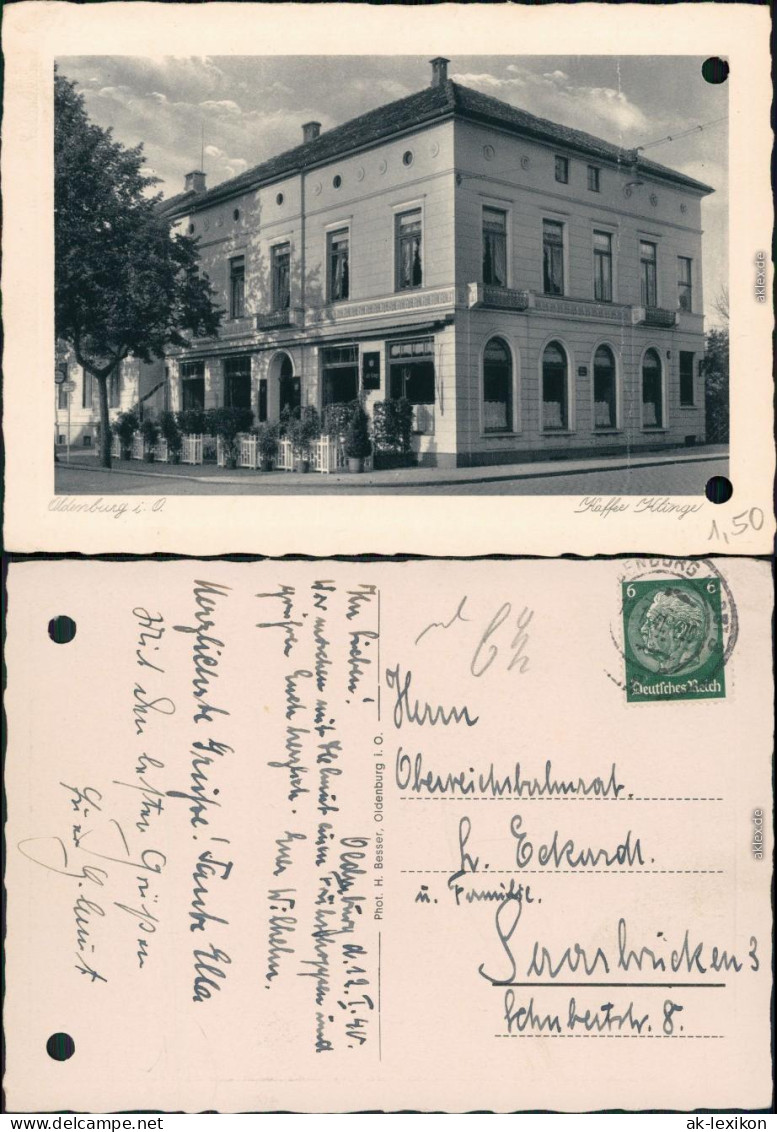 Oldenburg i. O.
Kaffee Klinge
1,50
aklex.de
Oldenburg d. 12. I. 40.
Ihr Lieben!
Wir machen mit Helmut zum Frühschoppen und
grüßen Euch herzlich. Euer Wilhelm.
Herzlichste Grüße! Tante Ella
Mit den besten Grüßen
Euer Helmut
Phot. H. Besser, Oldenburg i. O.
6 6
Deutsches Reich
Herrn
Oberreichsbahnrat.
H. Eckardt.
u. Familie.
Saarbrücken 3
Schubertstr. 8.
aklex.de
ak-lexikon